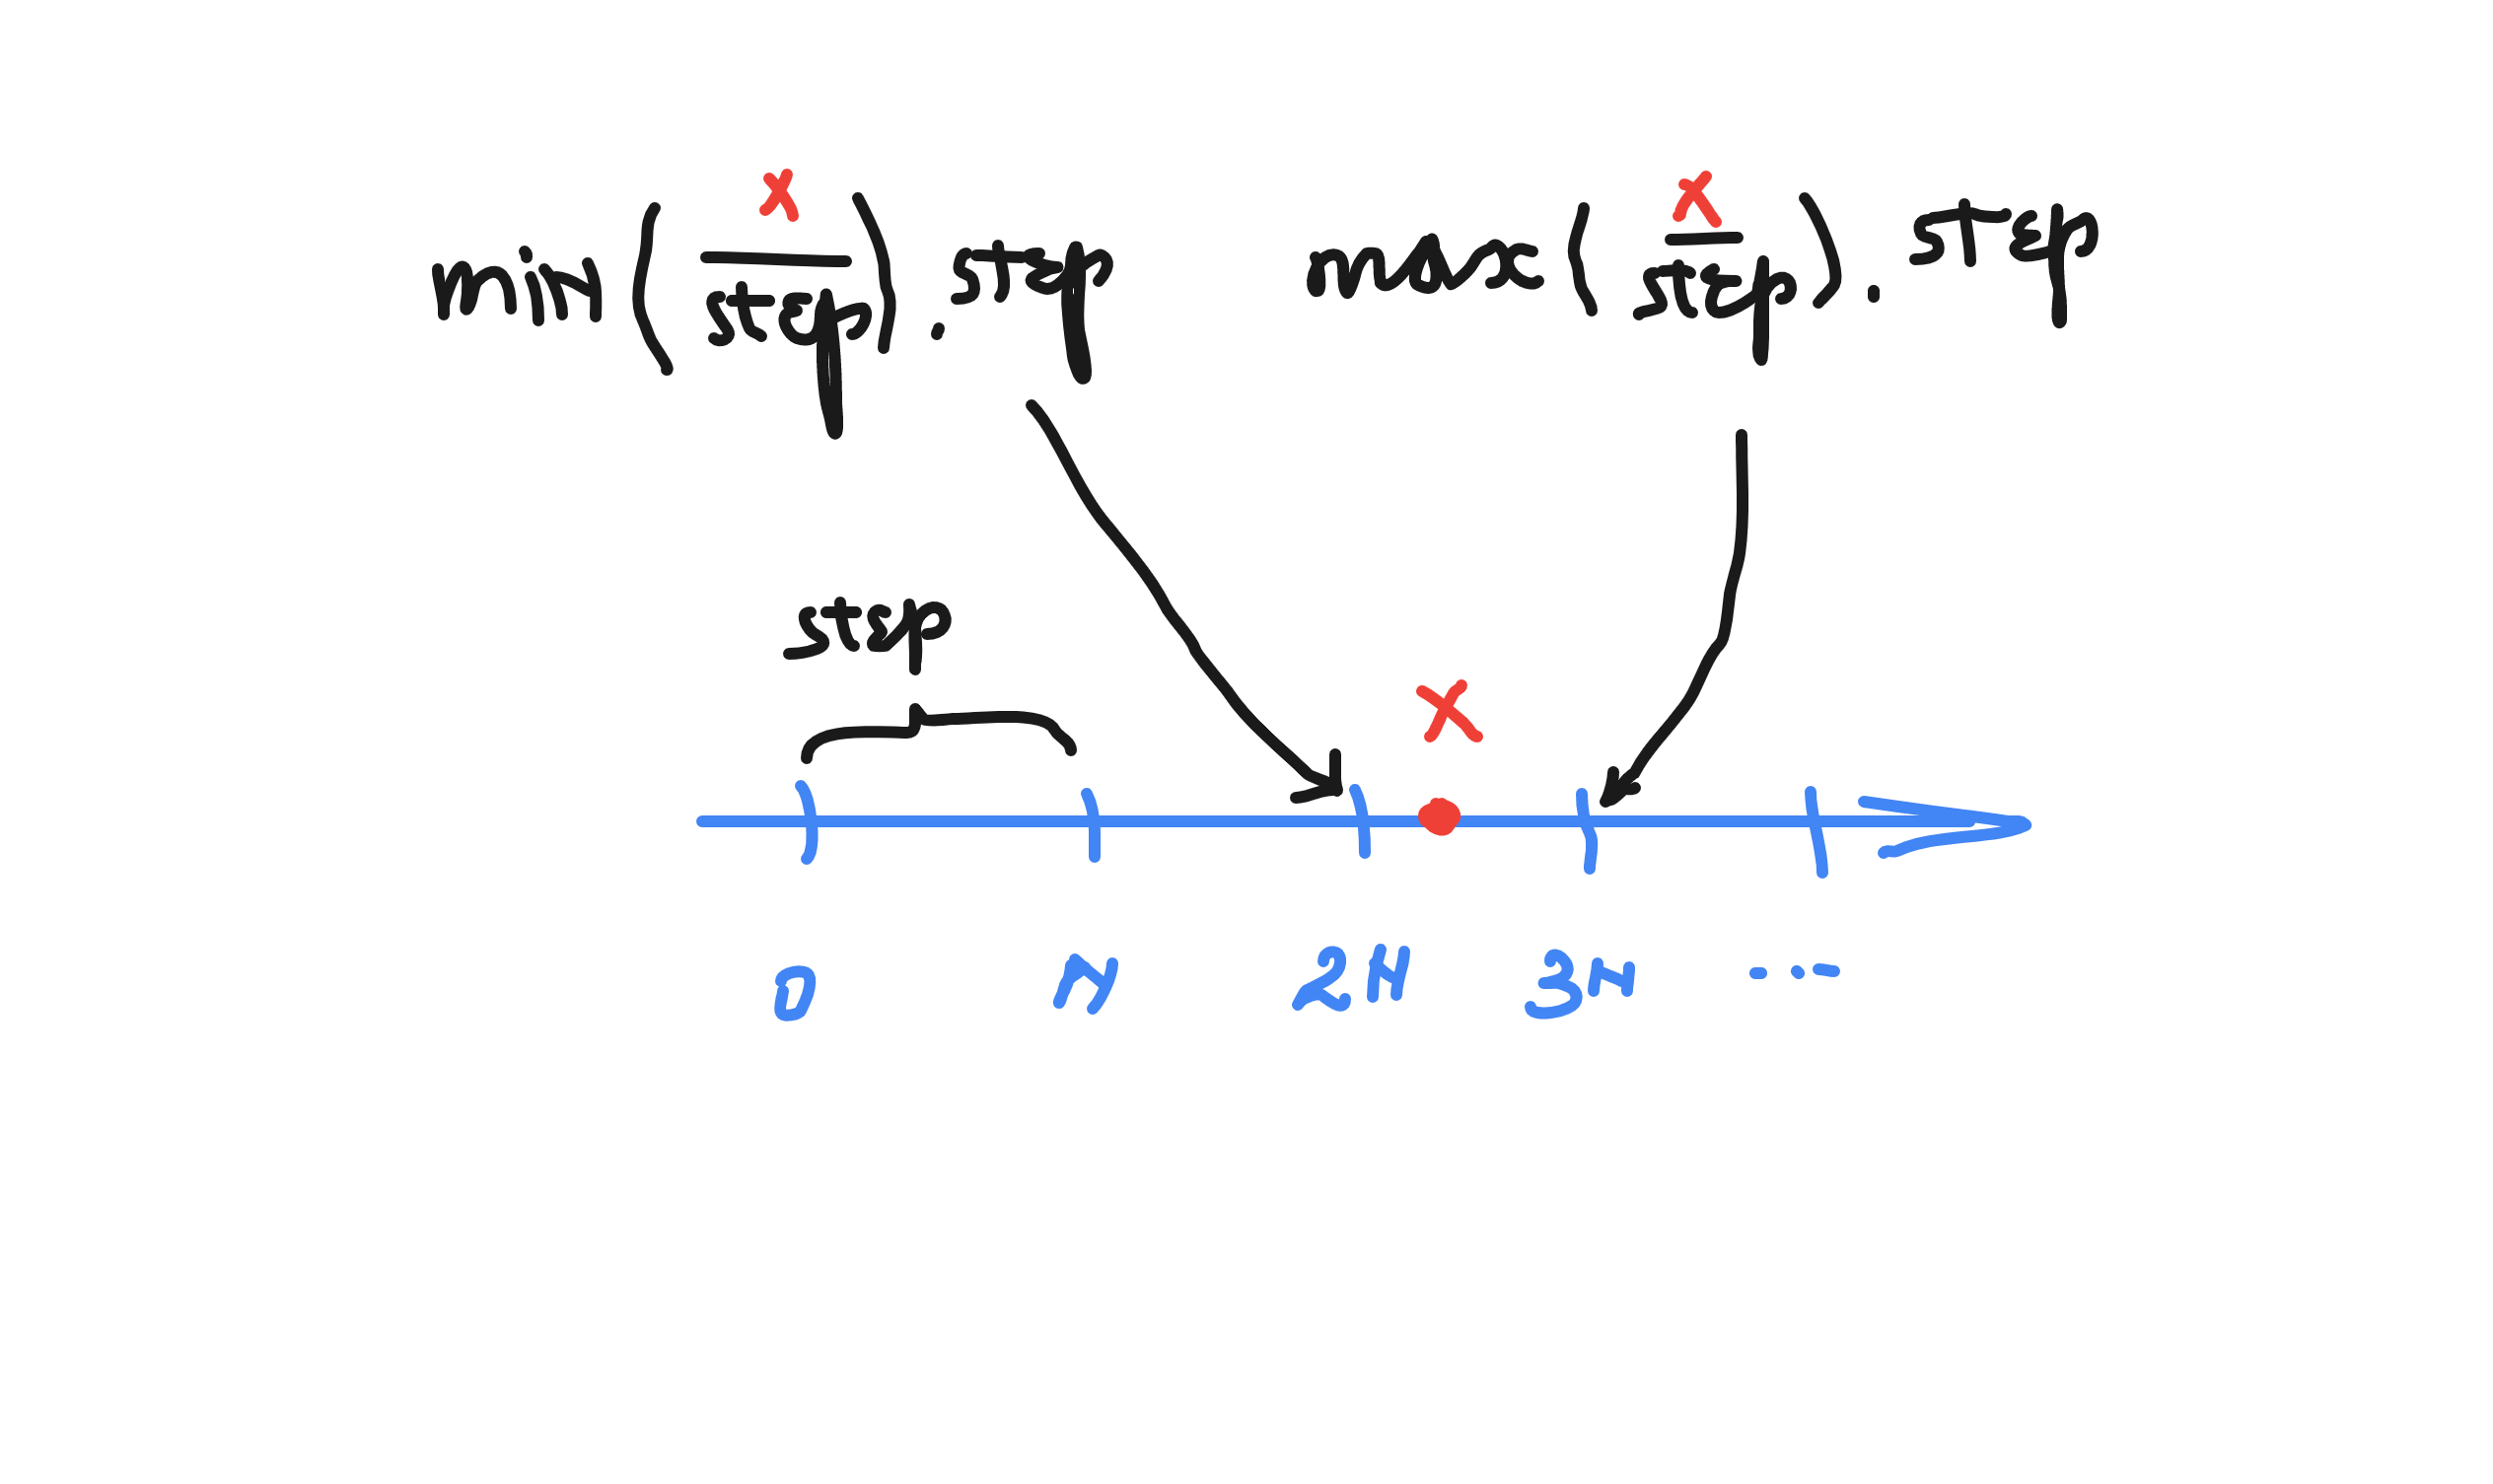 min ( x / step ) . step max ( x / step ) . step
step
x
0 H 2H 3H ...